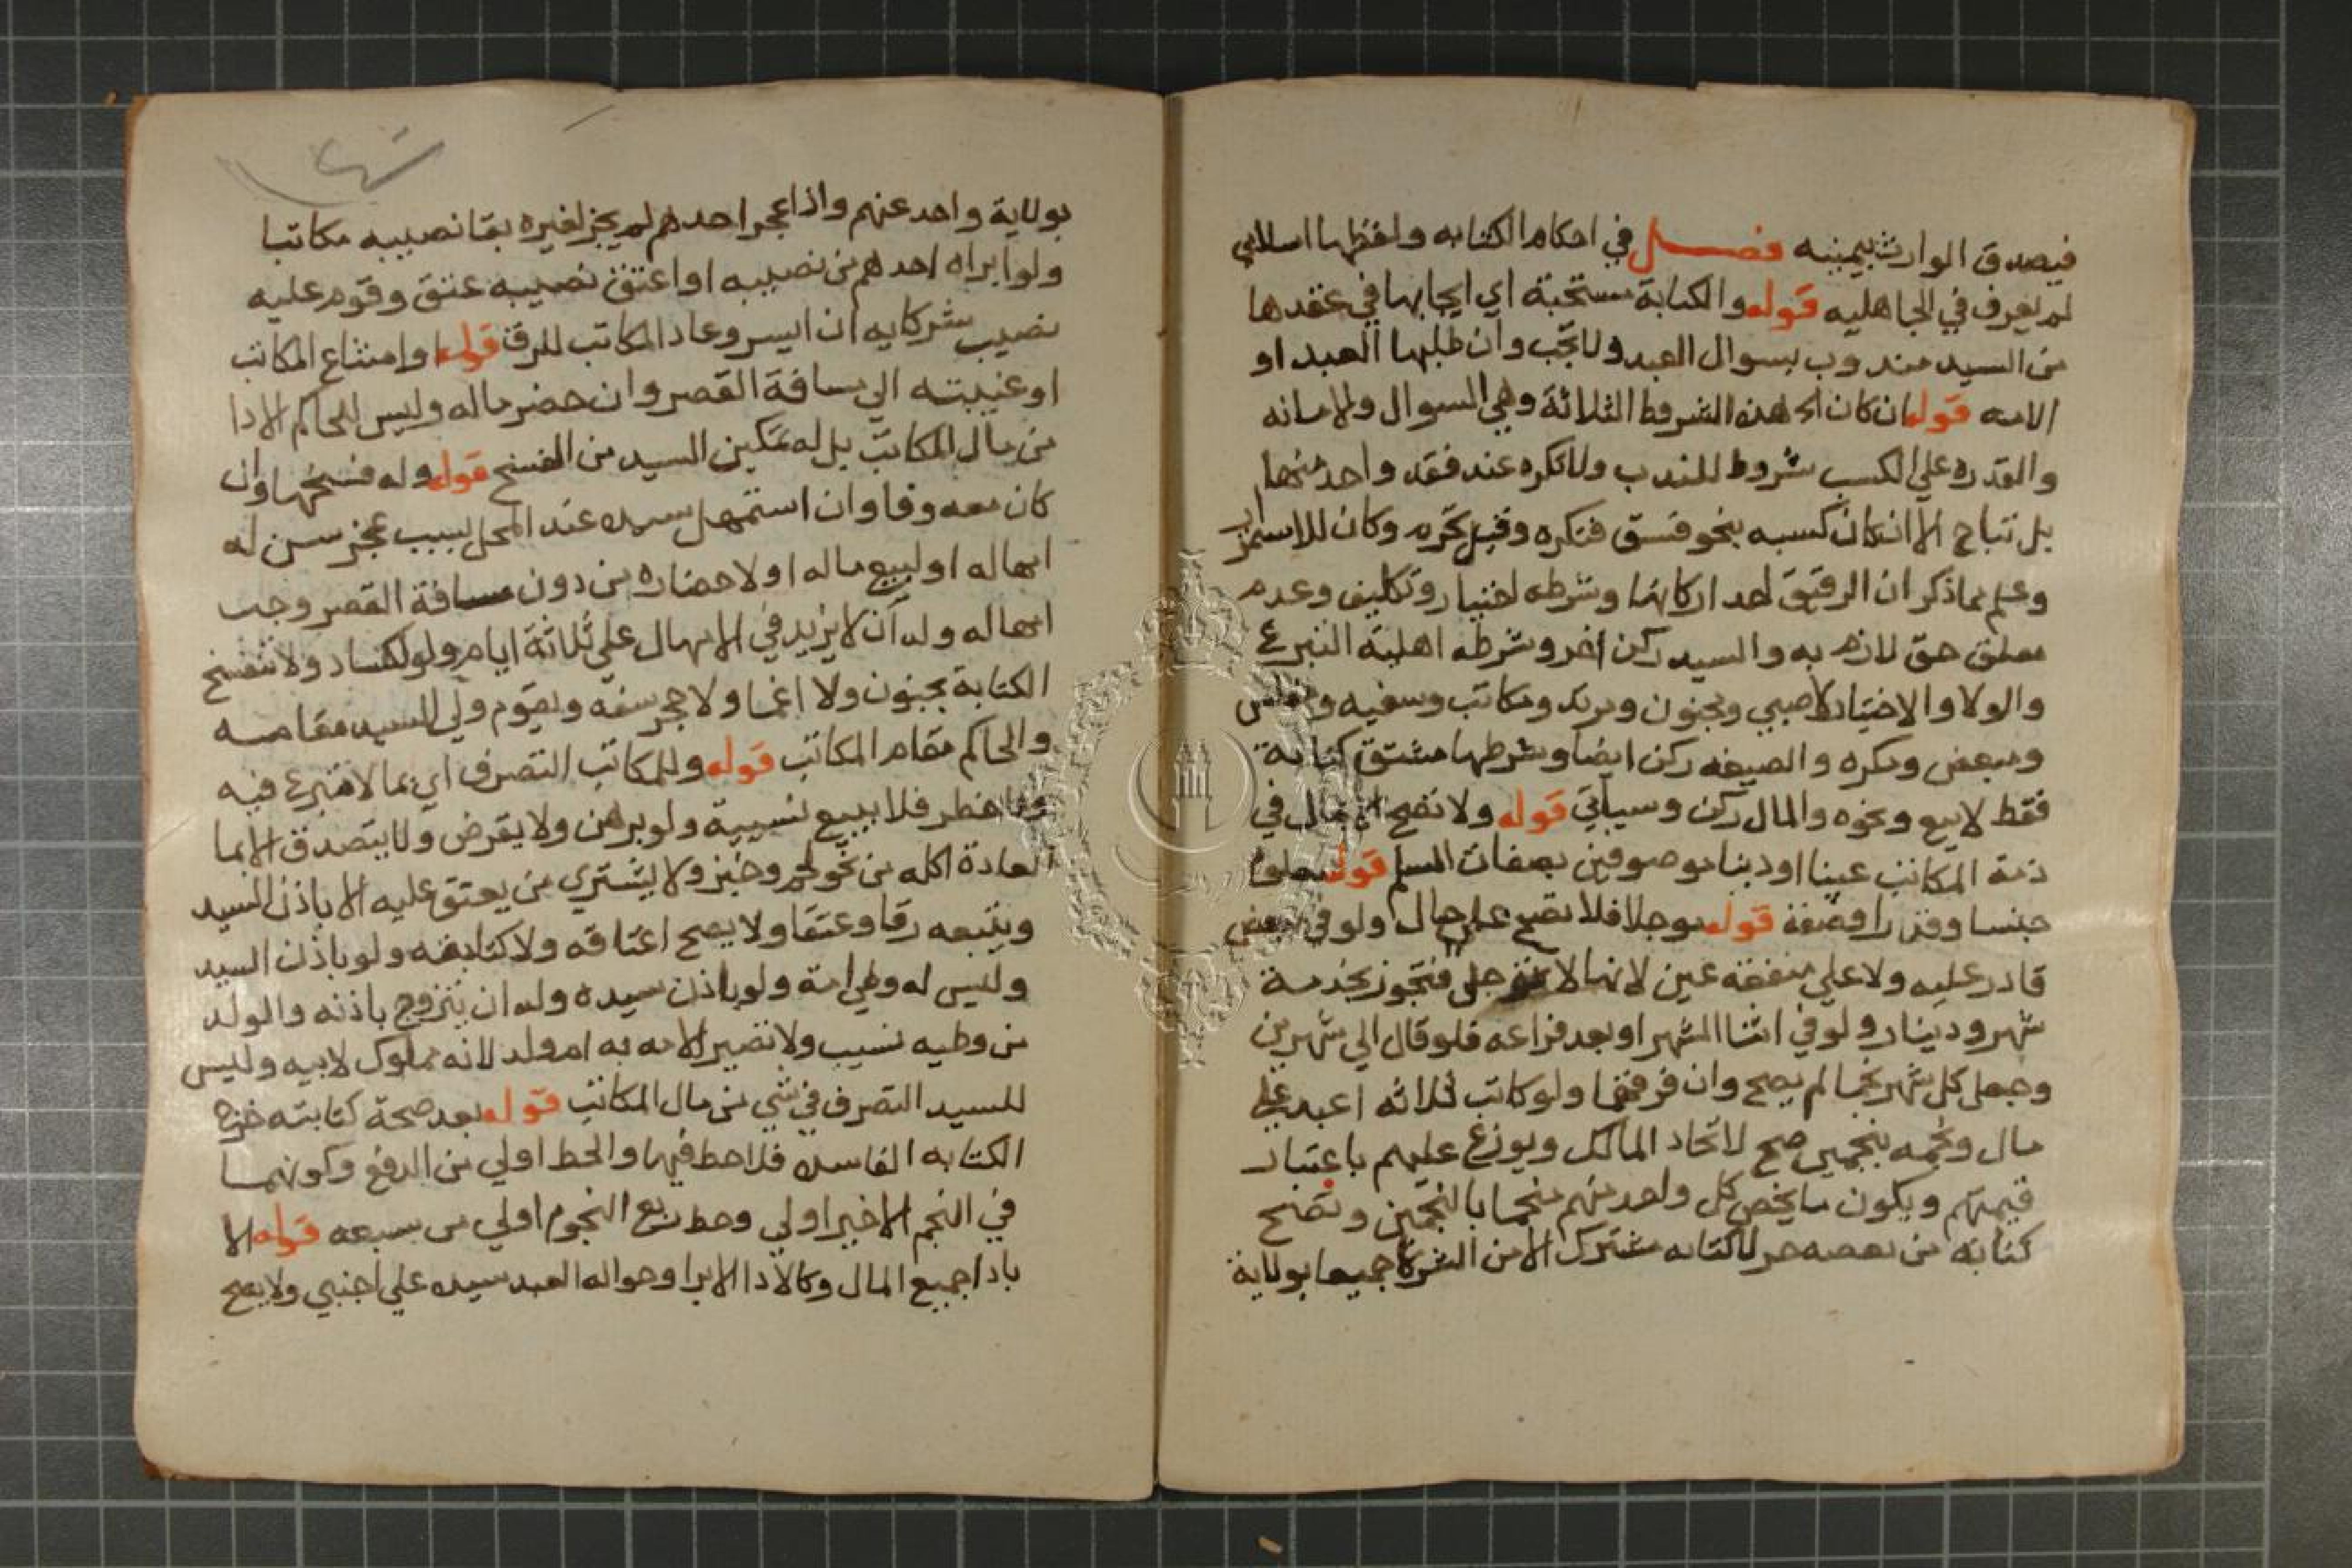 فيصدق الوارث بيمينه فصل في احكام الكتابه ولفظها اسلامي
لم يعرف في الجاهليه قوله والكتابة مستحبة اي ايجابها في عقدها
من السيد مندوب بسوال العبد ولا تجب وان طلبها العبد او
الامه قوله ان كان الخ هذه الشروط الثلاثة وهي السوال والامانه
والقدره علي الكسب شروط للندب ولا تكره عند فقد واحد منها
بل تباح الا ان كان كسبه بنحو فسق فتكره وقيل تحرم وكان للاستمرار
وعلم مما ذكر ان الرقيق احد اركانها وشرطه اختيار وتكليف وعدم
تعلق حق لازم به والسيد ركن اخر وشرطه اهلية التبرع
والولا والاختيار لا صبي ومجنون ومرتد ومكاتب وسفيه ومفلس
ومبعض ومكره والصيغه ركن ايضا وشرطها مشتق كتابة
فقط لا بيع ونحوه والمال ركن وسياتي قوله ولا تصح الا بمال في
ذمة المكاتب عينا او دينا موصوفين بصفات السلم قوله معلوما
جنسا وقدرا وصفة قوله موجلا فلا تصح علي حال ولو في بعض
قادر عليه ولا علي منفعة عين لانها لا توجل فتجوز بخدمة
شهر ودينار ولو في اثنا الشهر او بعد فراغه فلو قال الي شهرين
وجعل كل شهر نجما لم يصح وان فرقها ولو كاتب ثلاثه اعبد علي
مال ونجمه بنجمين صح لاتحاد المالك ويوزع عليهم باعتبار
قيمتهم ويكون ما يخص كل واحد منهم منجما بالنجمين وتصح
كتابة من بعضه حر لا كتابه مشترك الا من الشركا جميعا بولاية
بولاية واحد عنهم واذا عجز احدهم لم يجز لغيره بقا نصيبه مكاتبا
ولو ابراه احدهم من نصيبه او اعتق نصيبه عتق وقوم عليه
نصيب شركايه ان ايسر وعاد المكاتب للرق قوله وامتناع المكاتب
او غيبته الي مسافة القصر وان حضر ماله وليس للحاكم الادا
من مال المكاتب بل له تمكين السيد من الفسخ قوله وله فسخها وان
كان معه وفا وان استمهل سيده عند المحل لسبب عجز سن له
امهاله او لبيع ماله او لاحضاره من دون مسافة القصر وجب
امهاله وله ان لا يزيد في الامهال علي ثلاثة ايام ولو لكساد ولا تنفسخ
الكتابة بجنون ولا اغما ولا حجر سفه ويقوم ولي السيد مقامه
والحاكم مقام المكاتب قوله وللمكاتب التصرف اي بما لا تبرع فيه
ولا خطر فلا يبيع نسيية ولو برهن ولا يقرض ولا يتصدق الا بما
العادة اكله من نحو لحم وخبز ولا يشتري من يعتق عليه الا باذن السيد
ويتبعه رقا وعتقا ولا يصح اعتاقه ولا كتابته ولو باذن السيد
وليس له وطي امة ولو باذن سيده وله ان يتزوج باذنه والولد
من وطيه نسيب ولا تصير الامه به ام ولد لانه مملوك لابيه وليس
للسيد التصرف في شي من مال المكاتب قوله بعد صحة كتابته خرج
الكتابه الفاسده فلا حط فيها والحط اولي من الدفع وكونهما
في النجم الاخير اولي وحط ربع النجوم اولي من سبعه قوله الا
باداجميع المال وكالادا الابرا وحواله العبد سيده علي اجنبي ولا يصح